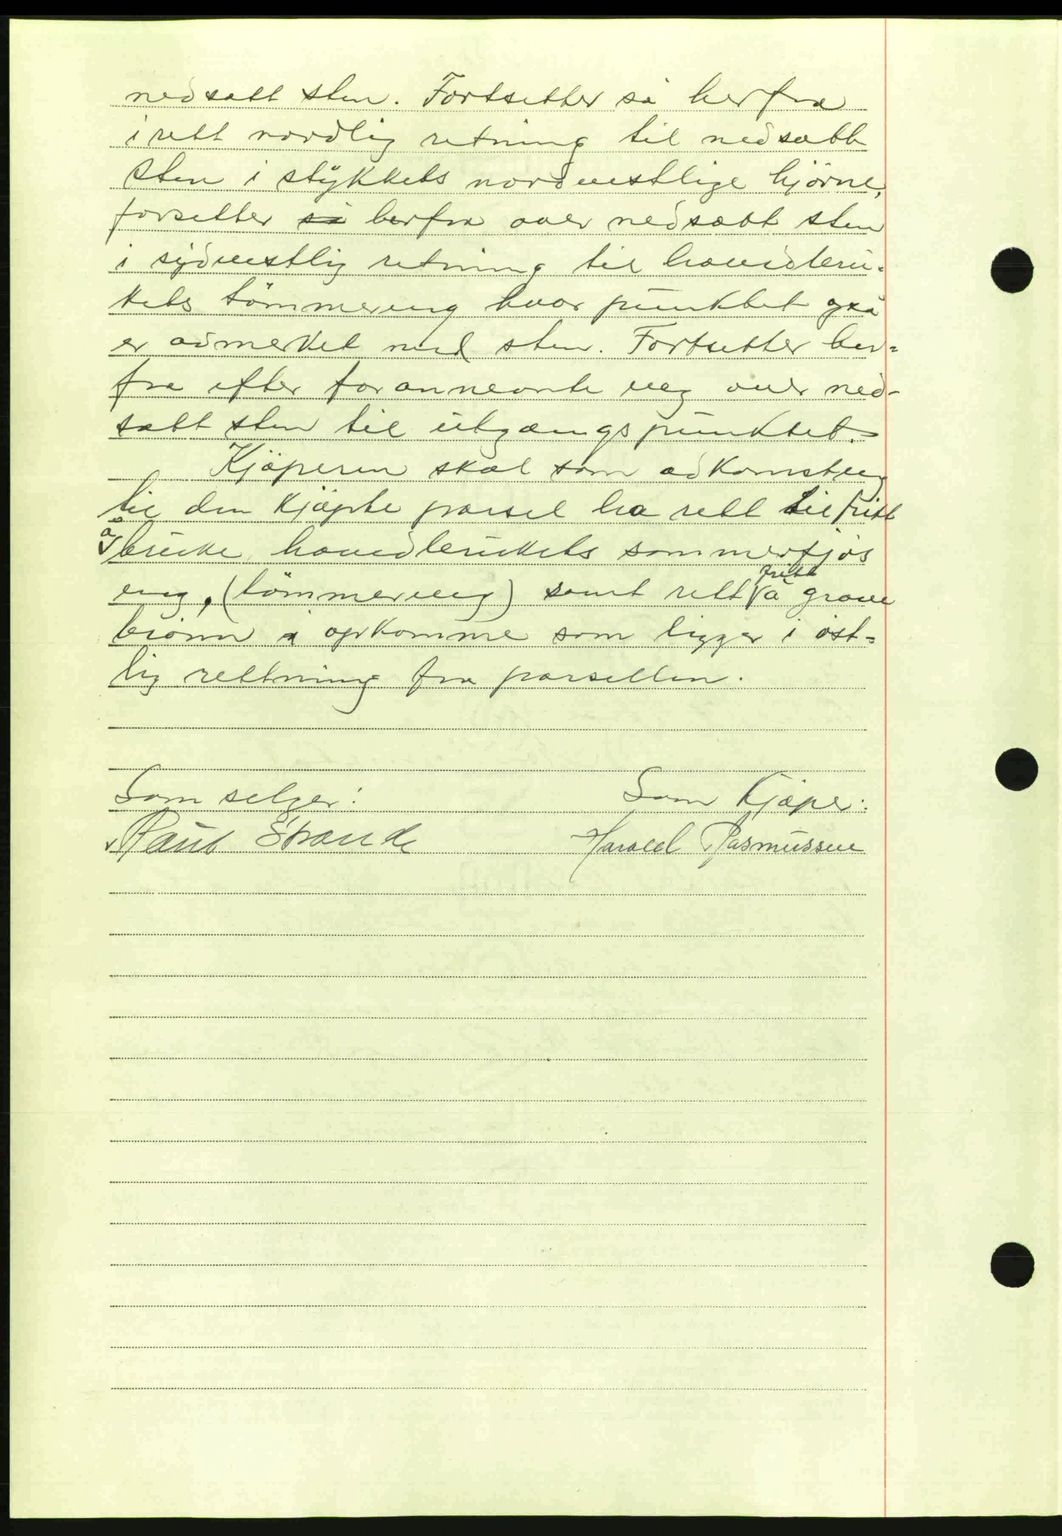 nedsatt sten. Fortsetter så herfra
i rett nordlig retning til nedsatt
sten i stykkets nordvestlige hjörne,
forsetter så herfra over nedsatt sten
i sydvestlig retning til hovedbru-
kets tömmerveg hvor punktet gså
er avmerket med sten. Fortsetter her-
fra efter forannevnte veg over ned-
satt sten til utgangspunktet.
Kjöperen skal som adkomstveg
til den kjöpte parsel ha rett til fritt
å bruke hovedbrukets sommerfjös
veg, (tömmerveg) samt rett fritt å grave
brönn i opkomme som ligger i öst-
lig rettning fra parsellen.
Som selger: Som Kjöper:
Paul Strande Harald Rasmussen